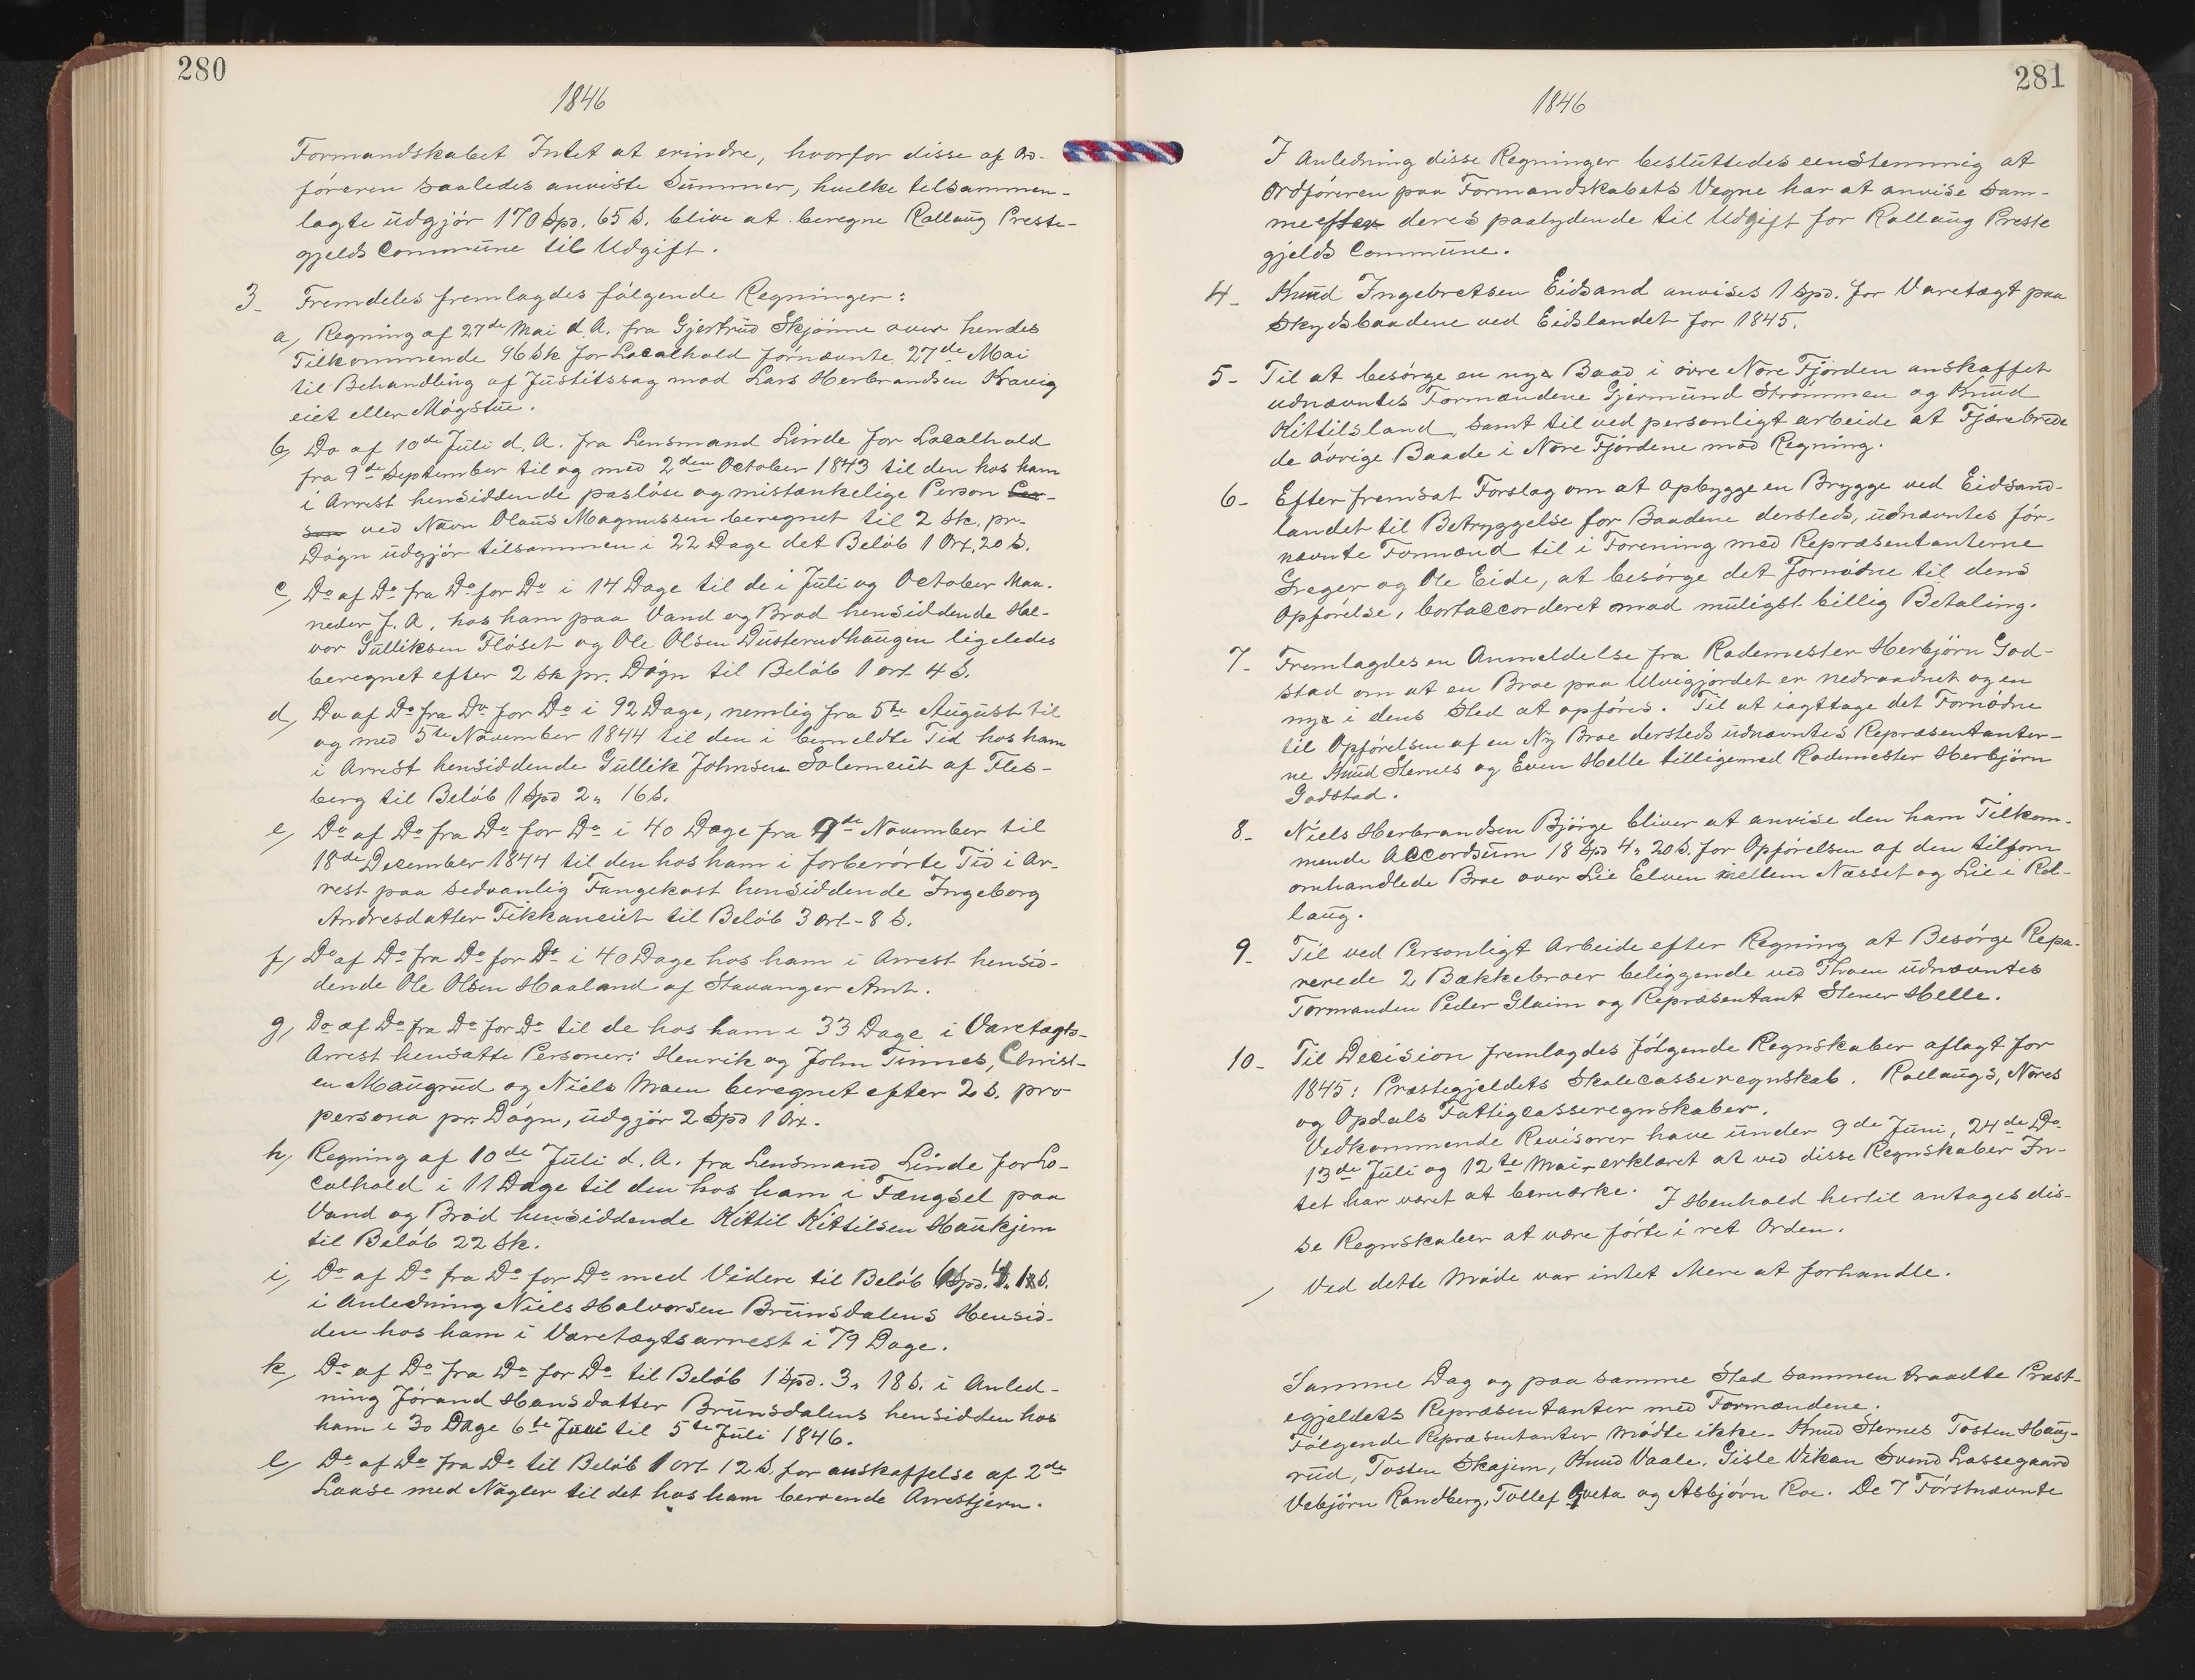 280
1846
Formandskabet Intet at erindre, hvorfor disse af Ord-
föreren saaledes anviste Summer, hvilke tilsammen-
lagte udgjör 170 Spd. 65 S. blive at beregne Rollaug Preste-
gjelds Commune til Udgift.
3_ Fremdeles fremlagdes følgende Regninger:
a, Regning af 27de Mai d. A. fra Gjertrud Skjönne over hendes
Tilkommende 96 Sk for Localhold förnævnte 27de Mai
til Behandling af Justitssag mod Lars Herbrandsen Kravig
eiet eller Mógstue.
b, Do af 10de Juli d. A. fra Lensmand Linde for Localhold
fra 9de September til og med 2den October 1843 til den hos ham
i Arrest hensiddende paslöse og mistænkelige Person Per-
son ved Navn Olaus Magnussen beregnet til 2 Sk. pr.
Dögn udgjör tilsammen i 22 Dage det Belöb 1 Ort, 20 S.
c, Do af Do fra Do for Do i 14 Dage til de i Juli og October Maa-
neder f. A. hos ham paa Vand og Brød hensiddende Hal-
vor Gulliksen Flöset og Ole Olsen Dusterudhaugen ligeledes
beregnet efter 2 sk pr. Dögn til Beløb 1 ort 4 S.
d, Do af Do fra Do for Do i 92 Dage, nemlig fra 5te August til
og med 5te November 1844 til den i bemeldte Tid hos ham
i Arrest hensiddende Gullik Johnsen Solemeiet af Fles-
berg til Belöb 1 Spd 2 " 16 S.
e, Do af Do fra Do for Do i 40 Dage fra 9de November til
18de December 1844 til den hos ham i forberörte Tid i Ar-
rest paa sedvanlig Fangekost hensiddende Ingeborg
Andresdatter Fikkaneiet til Belöb 3 ort - 8 S.
f, Do af Do fra Do for Do i 40 Dage hos ham i Arrest hensid-
dende Ole Olsen Haaland af Stavanger Amt.
g, Do af Do fra Do for Do til de hos ham i 33 Dage i Varetægts-
Arrest hensatte Personer: Henrik og John Tinnes, Christ-
en Maugrud og Niels Moen beregnet efter 2 S. pro
persona pr. Dögn, udgjör 2 Spd 1 Ort.
h, Regning af 10de Juli d. A. fra Lensmand Linde for Lo-
calhold i 11 Dage til den hos ham i Fængsel paa
Vand og Bröd hensiddende Kittil Kittilsen Haukjem
til Belöb 22 Sk.
i, Do af Do fra Do for Do med Videre til Belöb Spd.
i Anledning Niels Halvorsen Brunsdalens Hensid-
den hos ham i Varetægtsarrest i 79 Dage.
k, Do af Do fra Do for Do til Belöb 1 Spd. 3 " 18 S. i Anled-
ning Jórand Hansdatter Brunsdalens hensidden hos
ham i 30 Dage 6te Juni til 5te Juli 1846.
l, Do af Do fra Do til Belöb 1 ort 12 S. for anskaffelse af 2de
Laase med Nögler til det hos ham beroende Arrestjern.
281
1846
I Anledning disse Regninger besluttedes eenstemmig at
Ordföreren paa Formandskabets Vegne har at anvise sam-
me efter deres paalydende til Udgift for Rollaug Preste
gjelds Commune.
4_ Knud Ingebretsen Eidsand anvises 1 Spd. for Varetægt paa
Skydsbaadene ved Eidslandet for 1845.
5_ Til at besörge en nye Baad i övre Nore Fjorden anskaffet
udnævntes Formændene Gjermund Strømmen og Knud
Kittilsland, samt til ved personligt arbeide at Fjærebrede
de övrige Baade i Nore Fjordene mod Regning.
6_ Efter fremsat Forslag om at opbygge en Brygge ved Eidsand-
landet til Betryggelse for Baadene dersteds, udnævntes för-
nævnte Formænd til i Forening med Repræsentanterne
Greger og Ole Eide, at besörge det Fornödne til dens
Opförelse, bortaccorderet mod muligst billig Betaling.
7_ Fremlagdes en Anmeldelse fra Rodemester Herbjörn God-
stad om at en Broe paa Ulvigjordet er nedraadnet og en
nye i dens Sted at opföres. Til at iagttage det Fornödne
til Opförelsen af en Ny Broe dersteds udnævntes Repræsentanter-
ne Knud Sternes og Even Helle tilligemed Rodemester Herbjörn
Godstad.
8_ Niels Herbrandsen Bjórge bliver at anvise den ham Tilkom-
mende Accordsum 18 Spd 4 " 20 S. for Opförelsen af den tilforn
omhandlede Broe over Lie Elven mellem Næsset og Lie i Rol-
laug.
9_ Til ved Personligt Arbeide efter Regning at Besörge Repa-
rerede 2 Bækkebroer beliggende ved Thoen udnævntes
Formanden Peder Glaim og Repræsentant Stener Helle.
10_ Til Decision fremlagdes fölgende Regnskaber aflagt for
1845: Præstegjeldets Skolecasseregnskab. Rollaugs, Nores
og Opdals Fattigcasseregnskaber.
Vedkommende Revisorer have under 9de Juni, 24de Do
13de Juli og 12te Mai erklæret at ved disse Regnskaber In-
tet har været at bemærke. I Henhold hertil antages dis-
se Regnskaber at være förte i ret Orden.
Ved dette Möde var intet Mere at forhandle.
Samme Dag og paa samme Sted sammen traadte Præst-
egjeldets Repræsentanter med Formændene.
Fölgende Repræsentanter mödte ikke. Knud Sternes Tosten Haug-
rud, Tosten Skajem, Knud Vaale, Gisle Vikan Svend Lassegaard
Vebjörn Randberg, Tollef Qveta og Asbjörn Roe. De 7 Förstnævnte